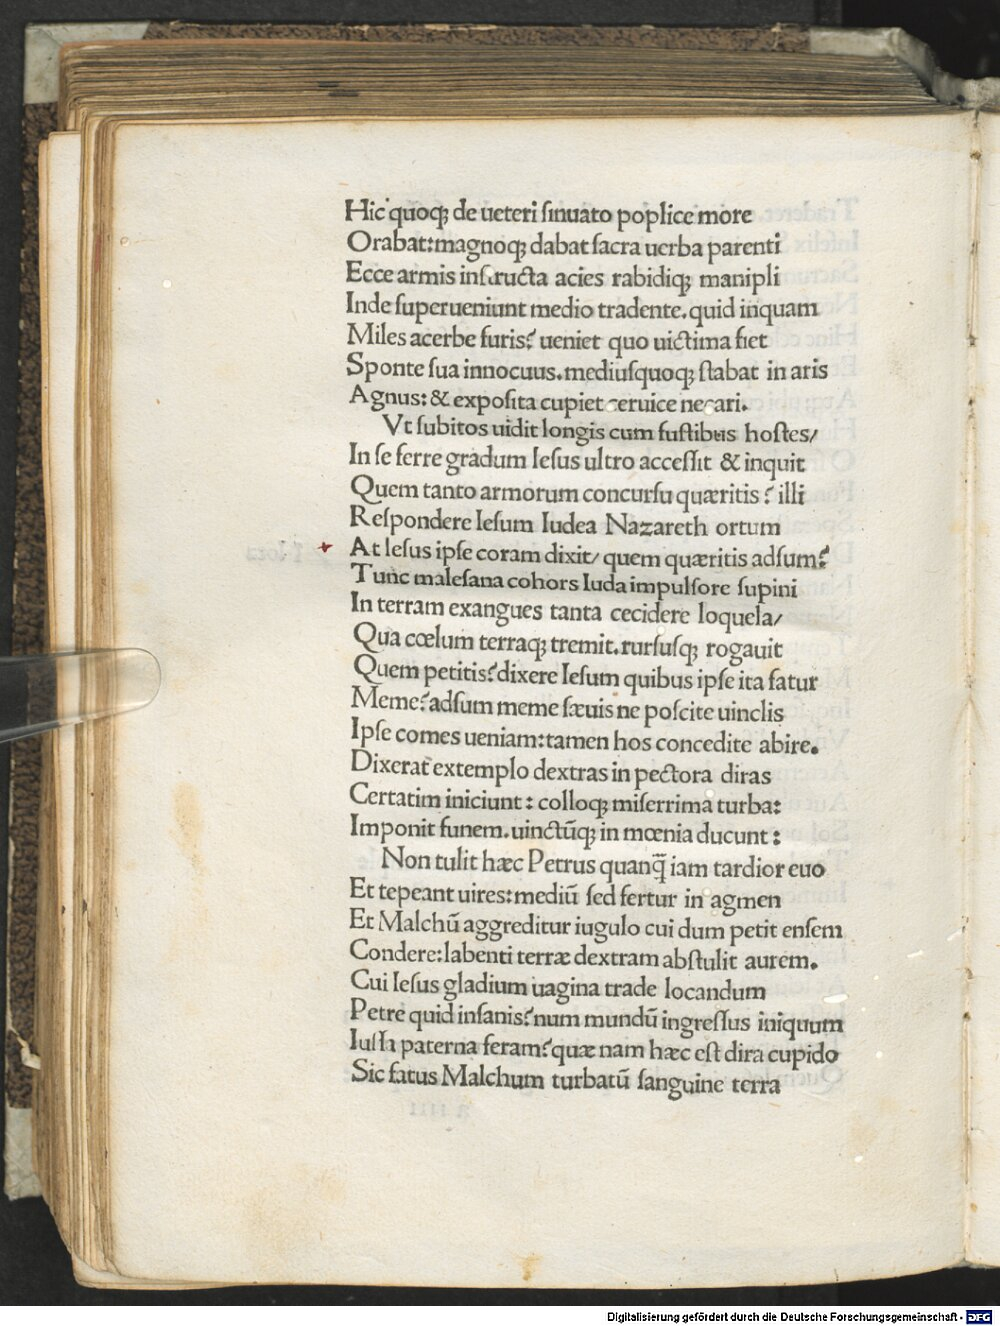 Hic quoqꝫ de ueteri ſinuato poplice more
Orabat:magnoqꝫ dabat ſacra uerba parenti
Ecce armis inſtructa acies rabidiqꝫ manipli
Inde ſuperueniunt medio tradente.quid inquam
Miles acerbe furis? ueniet quo uictima fiet
Sponte ſua innocuus.mediuſquoqꝫ ſtabat in aris
Agnus:& expoſita cupiet ceruice necari.
Vt ſubitos uidit longis cum fuſtibus hoſtes/
In ſe ferre gradum Ieſus ultro acceſſit & inquit
Quem tanto armorum concurſu quæritis? illi
Reſpondere Ieſum Iudea Nazareth ortum
At Ieſus ipſe coram dixit/ quem quæritis adſum?
Tunc maleſana cohors Iuda impulſore ſupini
In terram exangues tanta cecidere loquela/
Qua cœlum terraqꝫ tremit.rurſuſqꝫ rogauit
Quem petitis?dixere Ieſum quibus ipſe ita fatur
Meme?adſum meme ſæuis ne poſcite uinclis
Ipſe comes ueniam:tamen hos concedite abire.
Dixerat extemplo dextras in pectora diras
Certatim iniciunt: colloqꝫ miſerrima turba:
Imponit funem.uinctūqꝫ in mœnia ducunt:
Non tulit hæc Petrus quanq̄ iam tardior euo
Et tepeant uires:mediū ſed fertur in agmen
Et Malchū aggreditur iugulo cui dum petit enſem
Condere:labenti terræ dextram abſtulit aurem.
Cui Ieſus gladium uagina trade locandum
Petre quid inſanis?num mundū ingreſſus iniquum
Iuſſa paterna feram?quæ nam hæc eſt dira cupido
Sic fatus Malchum turbatū ſanguine terra
Digitalisierung gefördert durch die Deutsche Forschungsgemeinschaft - DFG